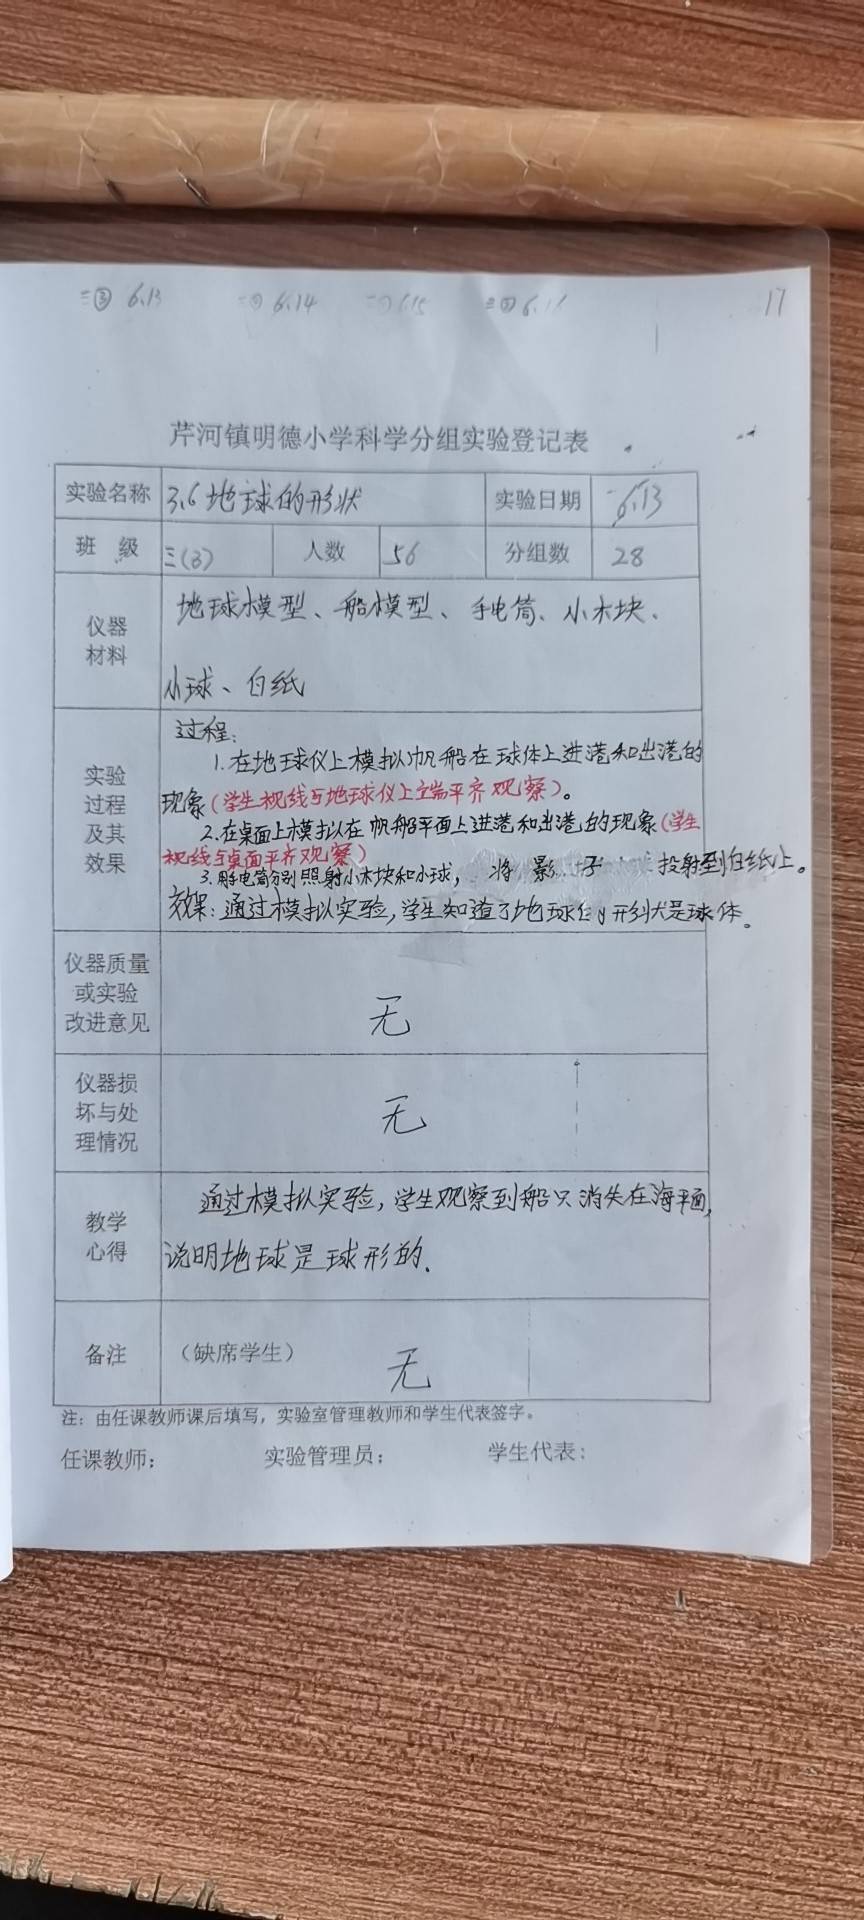 三③ 6.13 6.14 6.15 17
芹河镇明德小学科学分组实验登记表
实验名称 3.6地球的形状 实验日期 6.13
班 级 三(3) 人数 56 分组数 28
仪器材料 地球模型、船模型、手电筒、小木块、
小球、白纸
实验过程及其效果 过程:
1.在地球仪上模拟帆船在球体上进港和出港的
现象(学生视线与地球仪上端平齐观察)。
2.在桌面上模拟在帆船平面上进港和出港的现象(学生
视线与桌面平齐观察)
3.用手电筒分别照射小木块和小球, 将影子 投射到白纸上。
效果:通过模拟实验,学生知道了地球的形状是球体。
仪器质量或实验改进意见 无
仪器损坏与处理情况 无
教学心得 通过模拟实验,学生观察到船只消失在海平面,
说明地球是球形的.
备注 (缺席学生) 无
注:由任课教师课后填写,实验室管理教师和学生代表签字。
任课教师: 实验管理员: 学生代表: